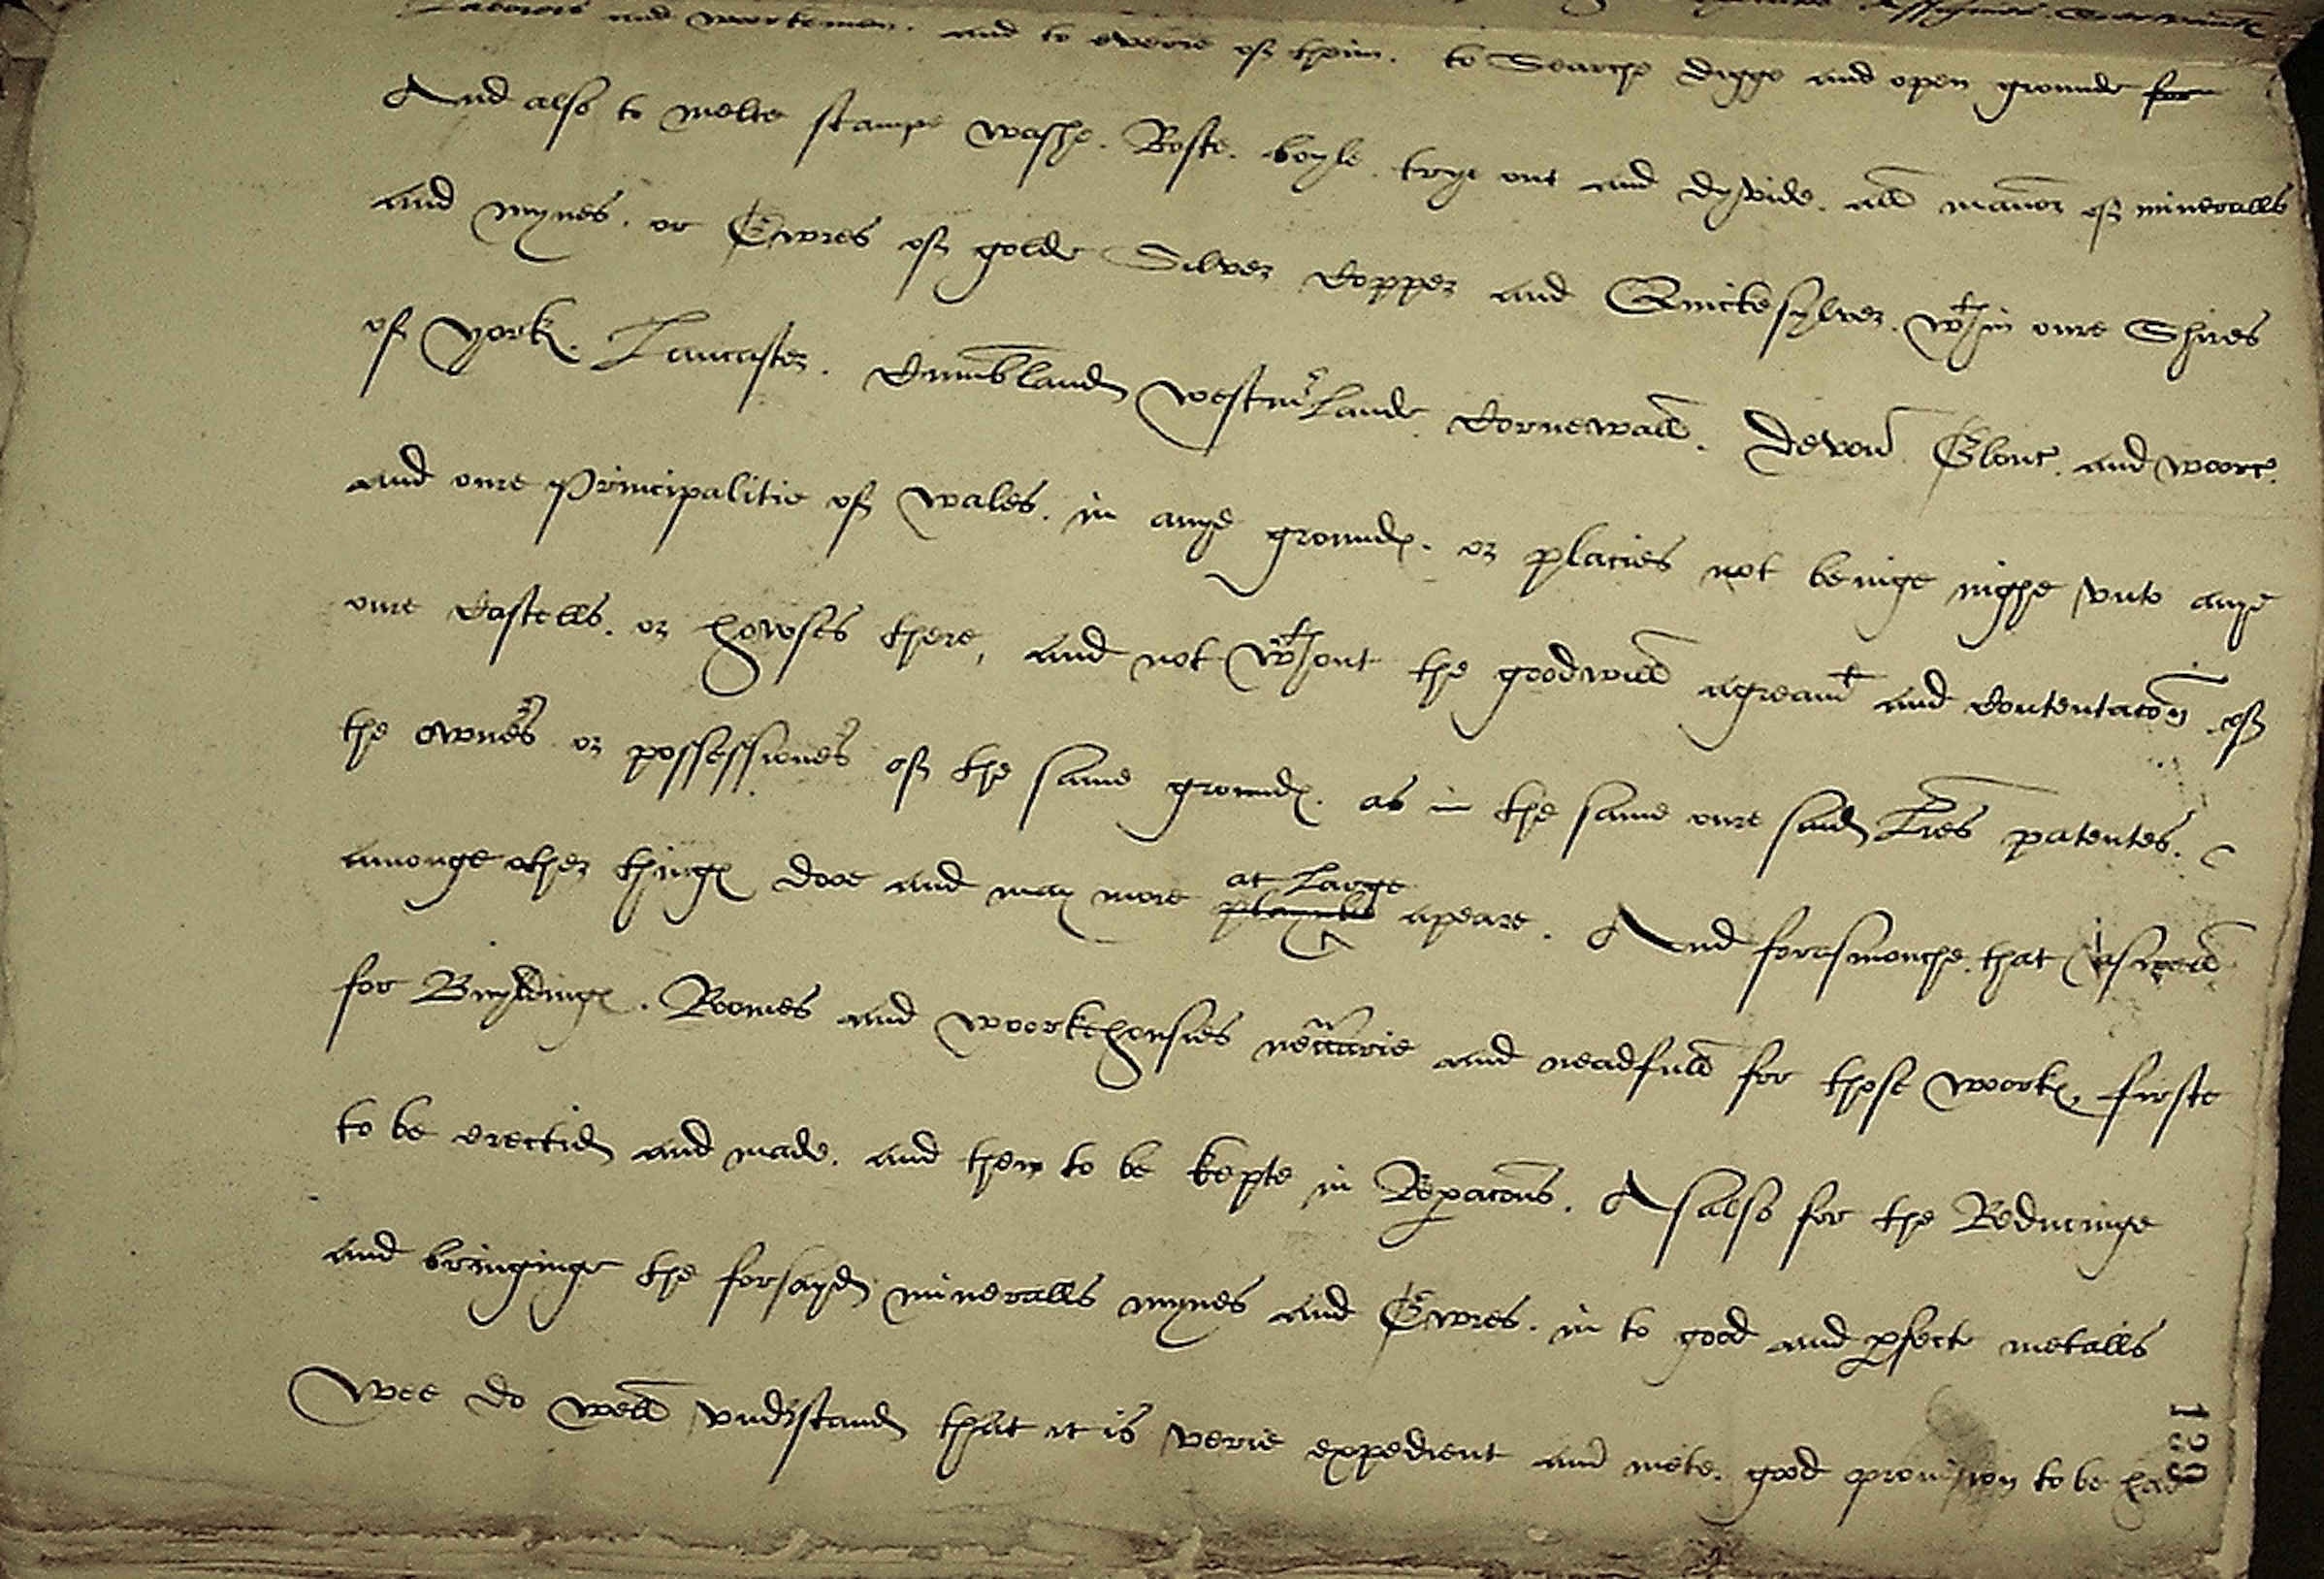 Laborers and workemen. and to everie of theim. to Searche Digge and open grounde for
And also to melte stampe washe. Roste. boyle. trye out and dyvide. all man̄er of mineralls
and mynes. or Ewres of golde Silver Copper and Quickesylver. wthin oure Shires
of york. Lancaster. Cum̄bland westm̄lande Cornewall. Devon̄ Glouc. and worc.
and oure principalitie of wales. in anye groundes. or placies not beinge nighe vnto anye
oure Castells. or howses there, and not wthout the goodwill agreamt and Contentacōn of
the owners or possessioners of the same groundes. as in the same oure said Lr̄es patentes.
amonge other thinges dooe and may more at Large playnlie apeare. And forasmouche that aswell
for Buyldinges. Roomes and woorkehousies nēccarie and neadfull for those workes firste
to be erectid and made. and then to be kepte in Repacōns. Asalso for the Reducinge
and bringinge the forsayd mineralls mynes and Ewres. in to good and pfecte metalls
Wee do well vnderstand that it is verie expedient and mete. good provision to be had
129